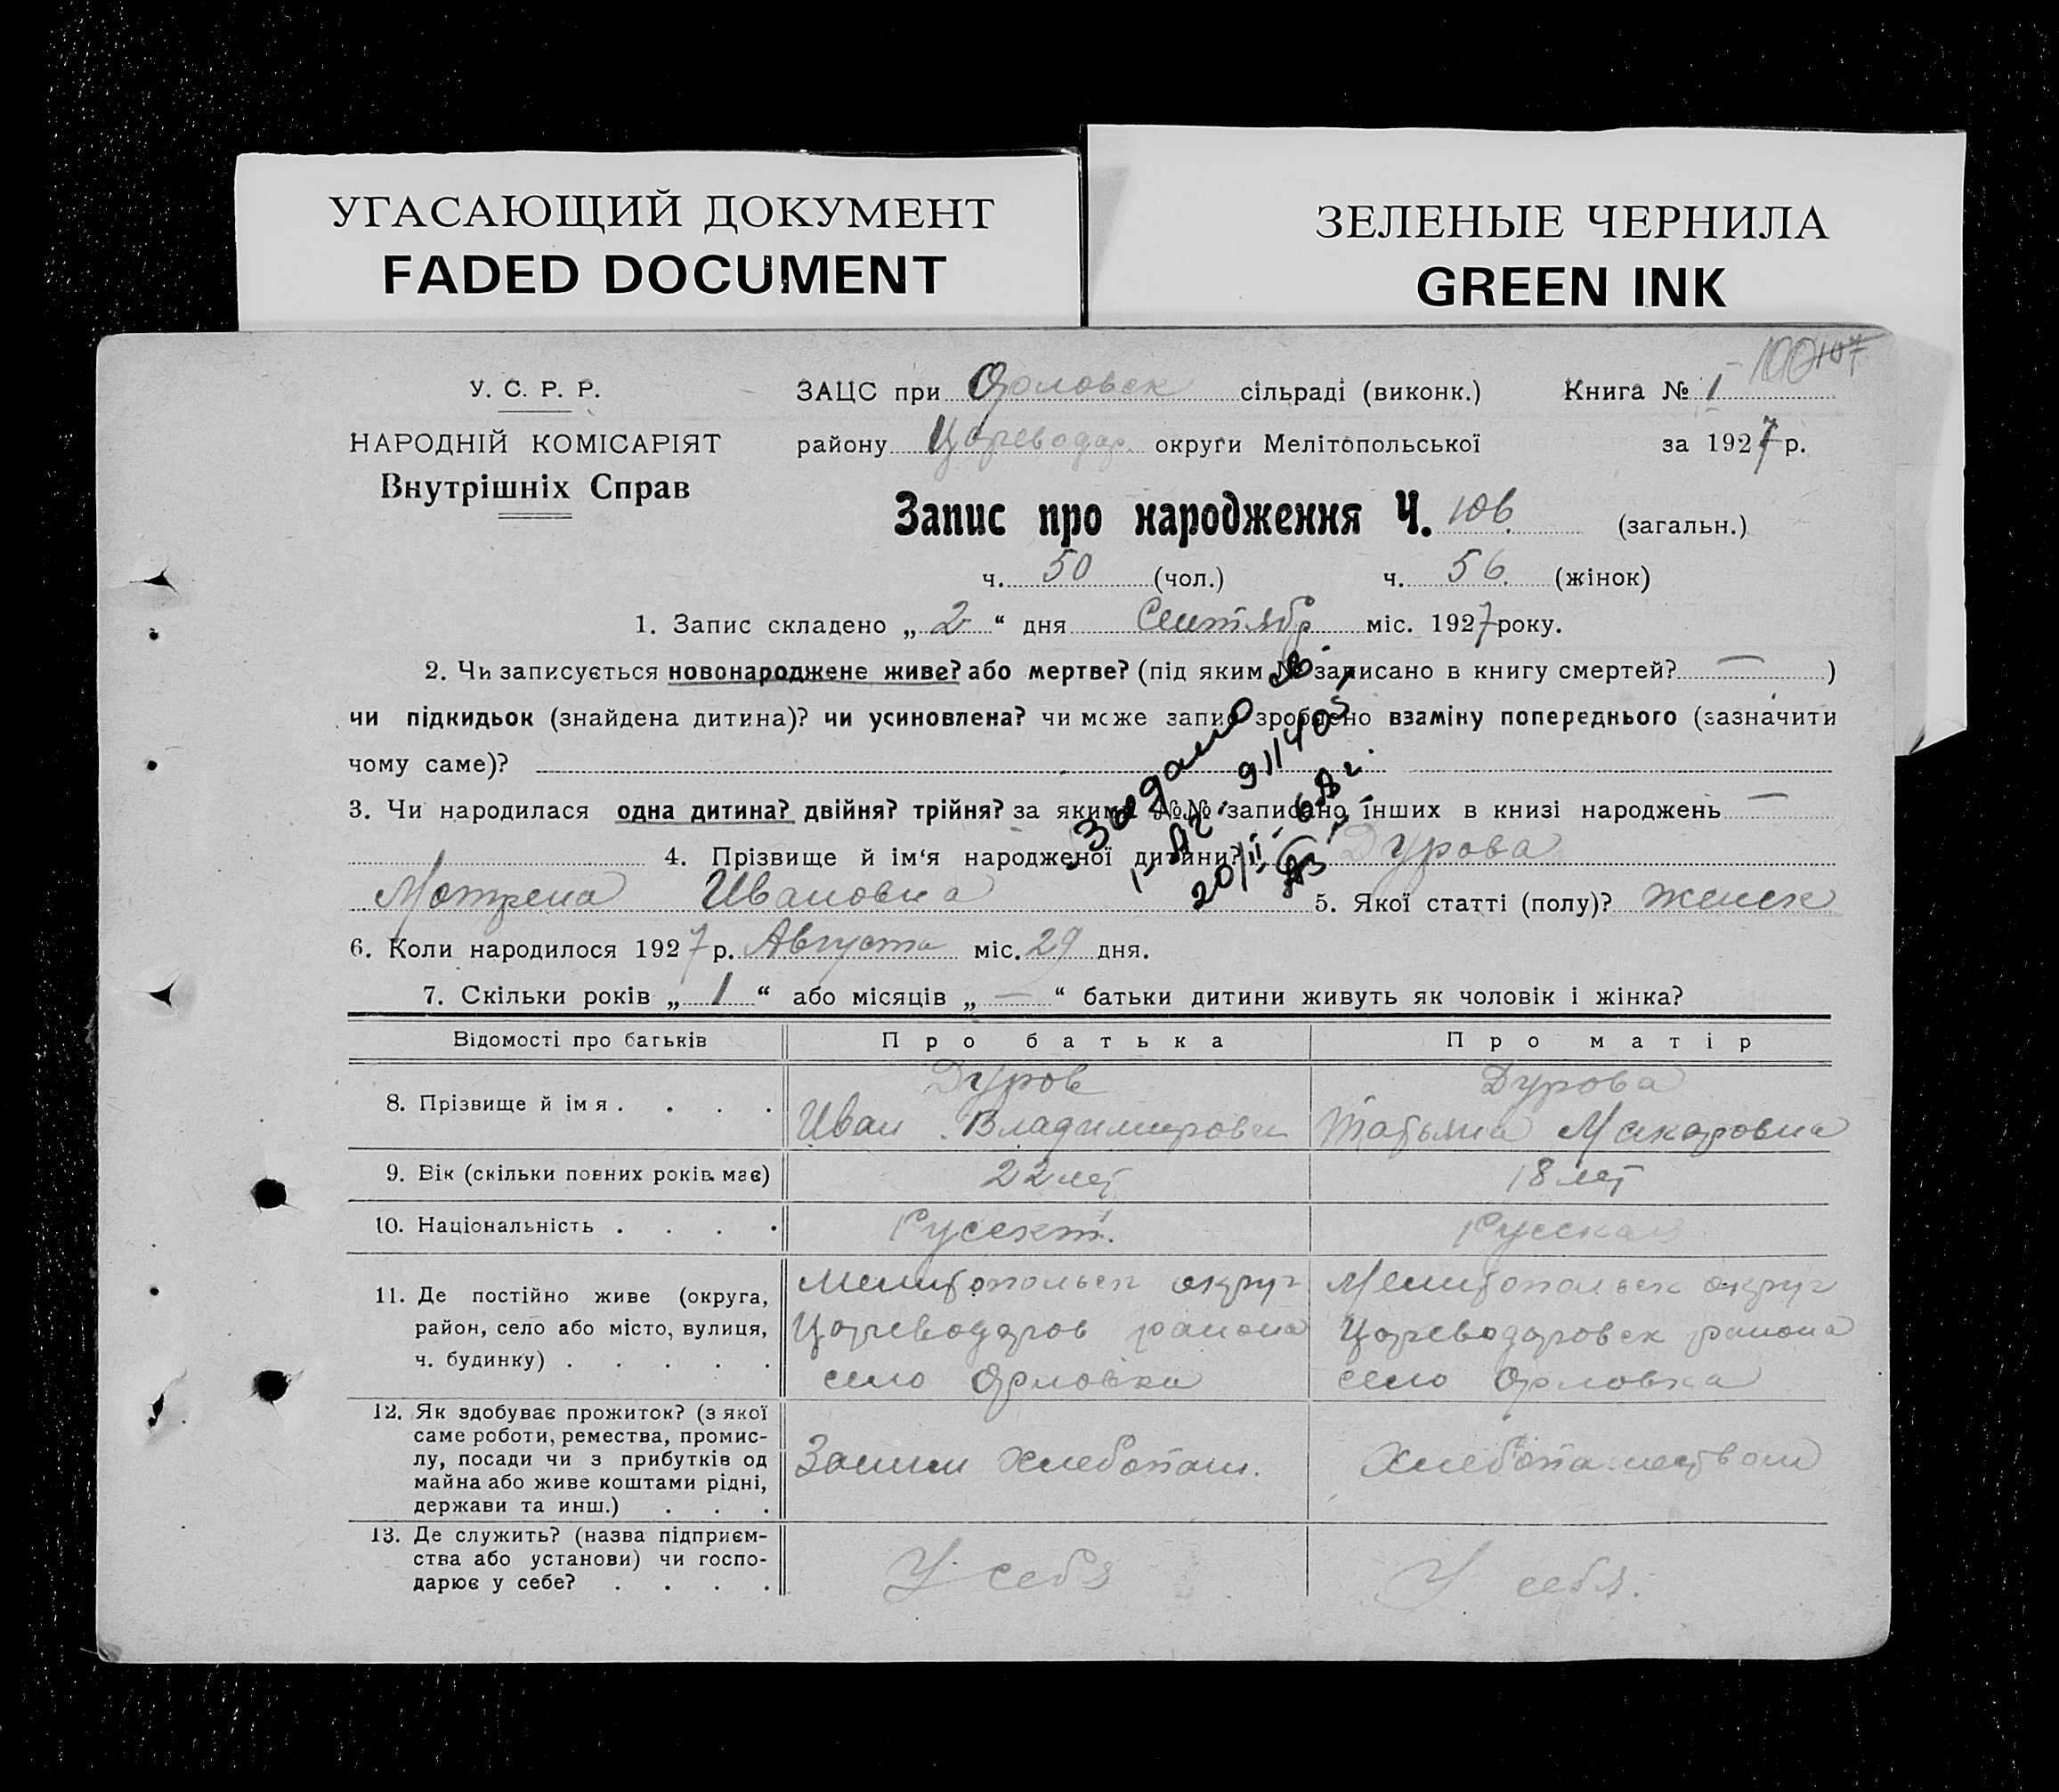 УГАСАЮЩИЙ ДОКУМЕНТ
FADED DOCUMENT
ЗЕЛЕНЫЕ ЧЕРНИЛА
GREEN INK
У. С. Р. Р.
НАРОДНІЙ КОМІСАРІЯТ
Внутрішніх Справ
ЗАЦС при Орловск сільраді (виконк.) Книга № 1
району Цареводар. округи Мелітопольської за 1927 р.
Запис про народження Ч. 106. (загальн.)
ч. 50 (чол.) ч. 56. (жінок)
1. Запис складено „ 2 “ дня Сентябр міс. 1927 року.
2. Чи записується новонароджене живе? або мертве? (під яким № записано в книгу смертей? — )
чи підкидьок (знайдена дитина)? чи усиновлена? чи може запис зроблено взаміну попереднього (зазначити
чому саме)?
3. Чи народилася одна дитина? двійня? трійня? за якими №№ записано інших в книзі народжень —
4. Прізвище й ім'я народженої дитини? Дурова
Мотрена Ивановна 5. Якої статті (полу)? женск
6. Коли народилося 1927 р. Августа міс. 29 дня.
7. Скільки років „ 1 “ або місяців „ — “ батьки дитини живуть як чоловік і жінка?
Відомості про батьків Про батька Про матір
8. Прізвище й ім я . . . . Дуров Дурова
Иван Владимирович Татьяна Макаровна
9. Вік (скільки повних років має) 22 лет 18 лет
10. Національність . . . . Русский Русская
11. Де постійно живе (округа, Мелитопольск округ Мелитопольск округ
район, село або місто, вулиця, Цареводаров района Цареводаровск района
ч. будинку) . . . . . село Орловка село Орловка
12. Як здобуває прожиток? (з якої
саме роботи, ремества, промис-
лу, посади чи з прибутків од Заним хлебопаш. хлебопашеством
майна або живе коштами рідні,
держави та инш.) . . .
13. Де служить? (назва підприєм-
ства або установи) чи госпо- У себя У себя.
дарює у себе? . . . .